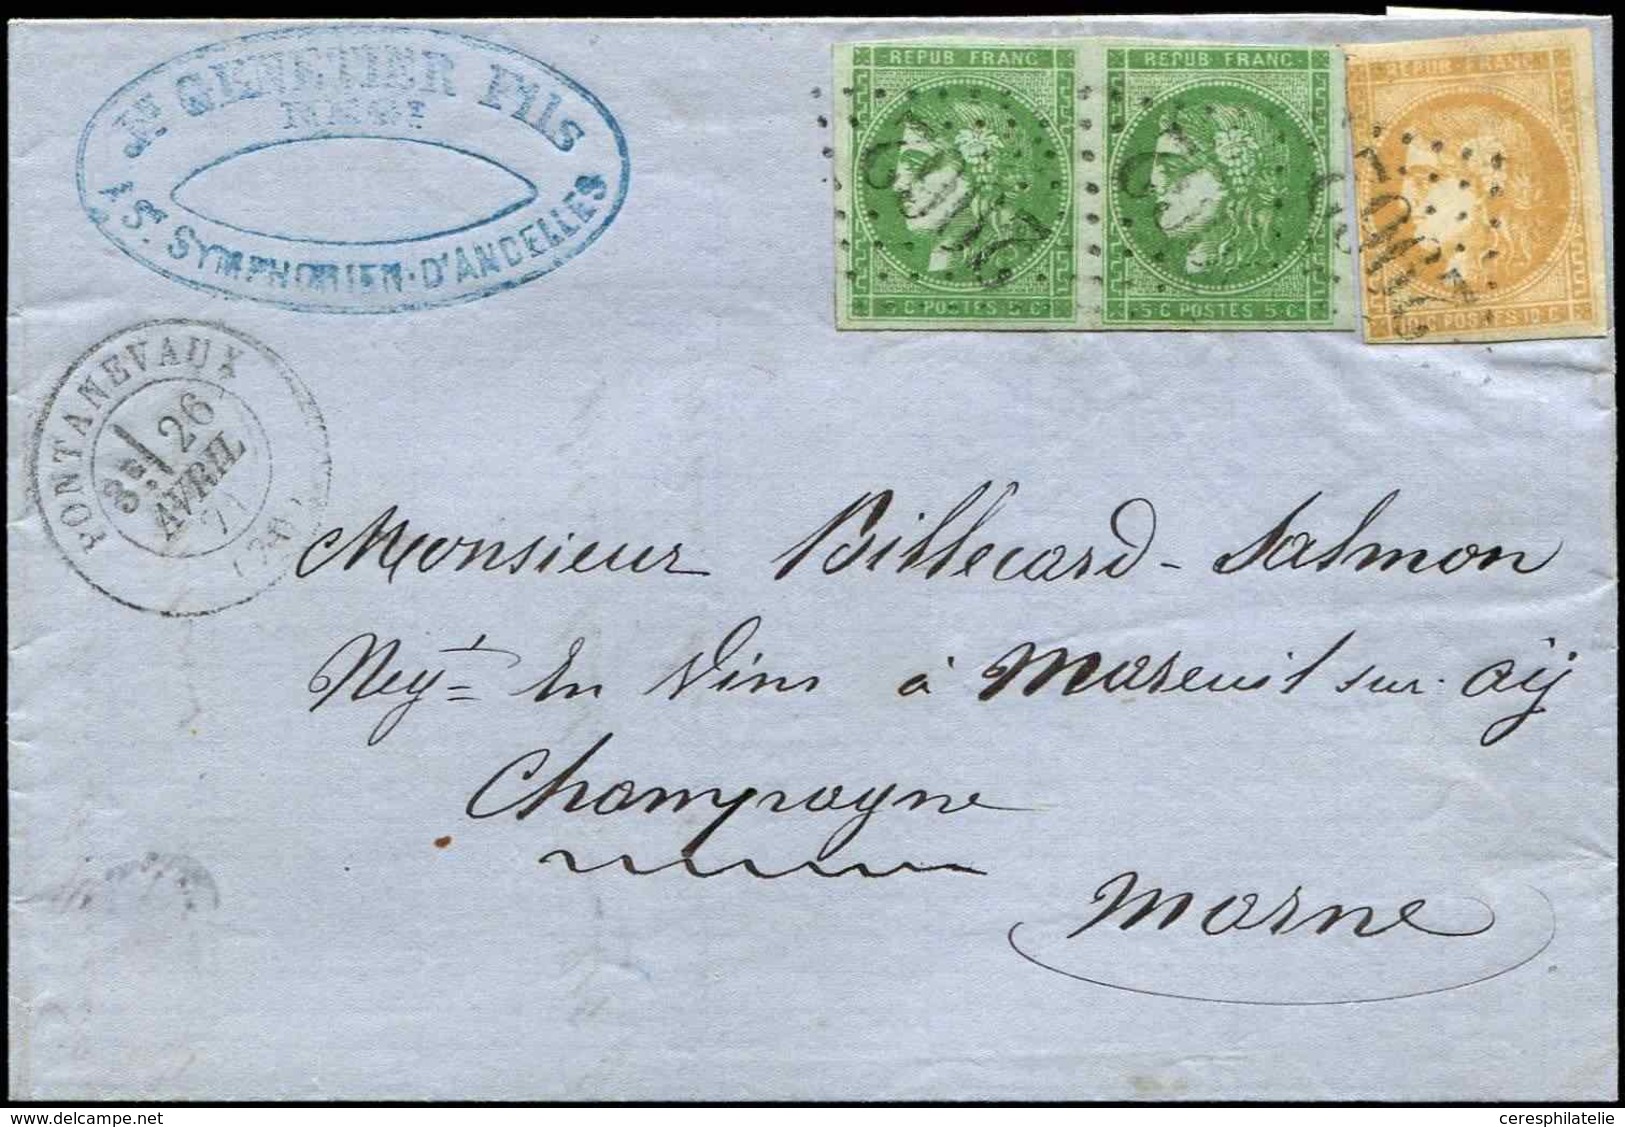 Jn GENETIER Fils
NÉGt
A St SYMPHORIEN-D'ANCELLES
REPUB FRANC
5 C POSTES 5 C
REPUB FRANC
5 C POSTES 5 C
REPUB FRANC
10 C POSTES 10 C
PONTANEVAUX
3E
26
AVRIL
71
(70)
Monsieur Billecard-Salmon
Négt En Vins à Mareuil sur Aÿ
Champagne
Marne
ceresphilatelie